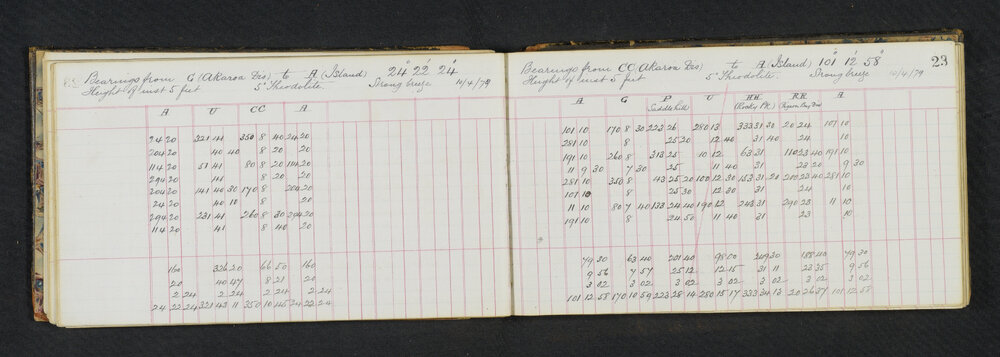 Bearings from G (Akaroa Des) to A (Island) 24° 22' 24"
Height of inst 5 feet 5" Theodolite. Strong breeze 10/4/79
A U CC A
24 20 321 41 350 8 40 24 20
204 20 40 40 8 20 20
114 20 51 41 80 8 20 114 20
294 20 41 8 20 20
204 20 141 40 30 170 8 204 20
24 20 40 10 8 20
294 20 231 41 260 8 30 294 20
114 20 41 8 40 20
160 326 20 66 50 160
20 40 47 8 21 20
2 24 2 24 2 24 2 24
24 22 24 321 43 11 350 10 45 24 22 24
23
Bearings from CC (Akaroa Des) to A (Island) 101° 12' 58"
Height of inst 5 feet 5" Theodolite. Strong breeze 10/4/79
A G P U HH RR A
Saddle hill (Rocky Pk.) (Pigeon Bay Des)
101 10 170 8 30 223 26 280 13 333 31 30 20 24 101 10
281 10 8 25 20 12 40 31 40 24 10
191 10 260 8 313 25 10 12 63 31 110 23 40 191 10
11 9 30 7 30 25 11 40 31 23 20 9 30
281 10 350 8 43 25 20 100 12 30 153 31 20 200 23 40 281 10
101 10 8 25 30 12 30 31 24 10
11 10 80 7 40 133 24 40 190 12 243 31 290 23 11 10
191 10 8 24 50 11 40 31 23 10
79 30 63 40 201 40 98 00 249 30 188 40 79 30
9 56 7 57 25 12 12 15 31 11 23 35 9 56
3 02 3 02 3 02 3 02 3 02 3 02 3 02
101 12 58 170 10 59 223 28 14 280 15 17 333 34 13 20 26 37 101 12 58